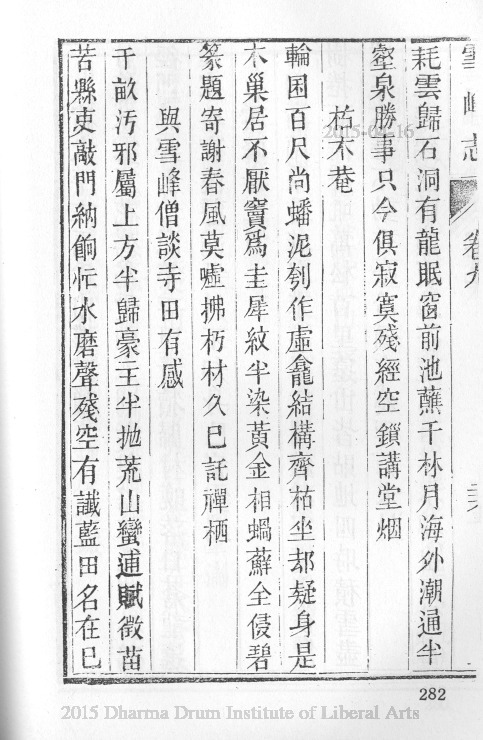 雪峰志 卷九
耗雲歸石洞有龍眠窗前池蘸千林月海外潮通半
壑泉勝事只今俱寂寞殘經空鎖講堂烟
枯木菴
輪囷百尺尚蟠泥刳作虛龕結構齊枯坐却疑身是
木巢居不厭竇爲圭犀紋半染黃金相蝸蘚全侵碧
篆題寄謝春風莫噓拂朽材久已託禪栖
與雪峰僧談寺田有感
千畝汚邪屬上方半歸豪主半拋荒山蠻逋賦徵苗
苦縣吏敲門納餉忙水磨聲殘空有讖藍田名在已
282
2015-04-16
2015 Dharma Drum Institute of Liberal Arts